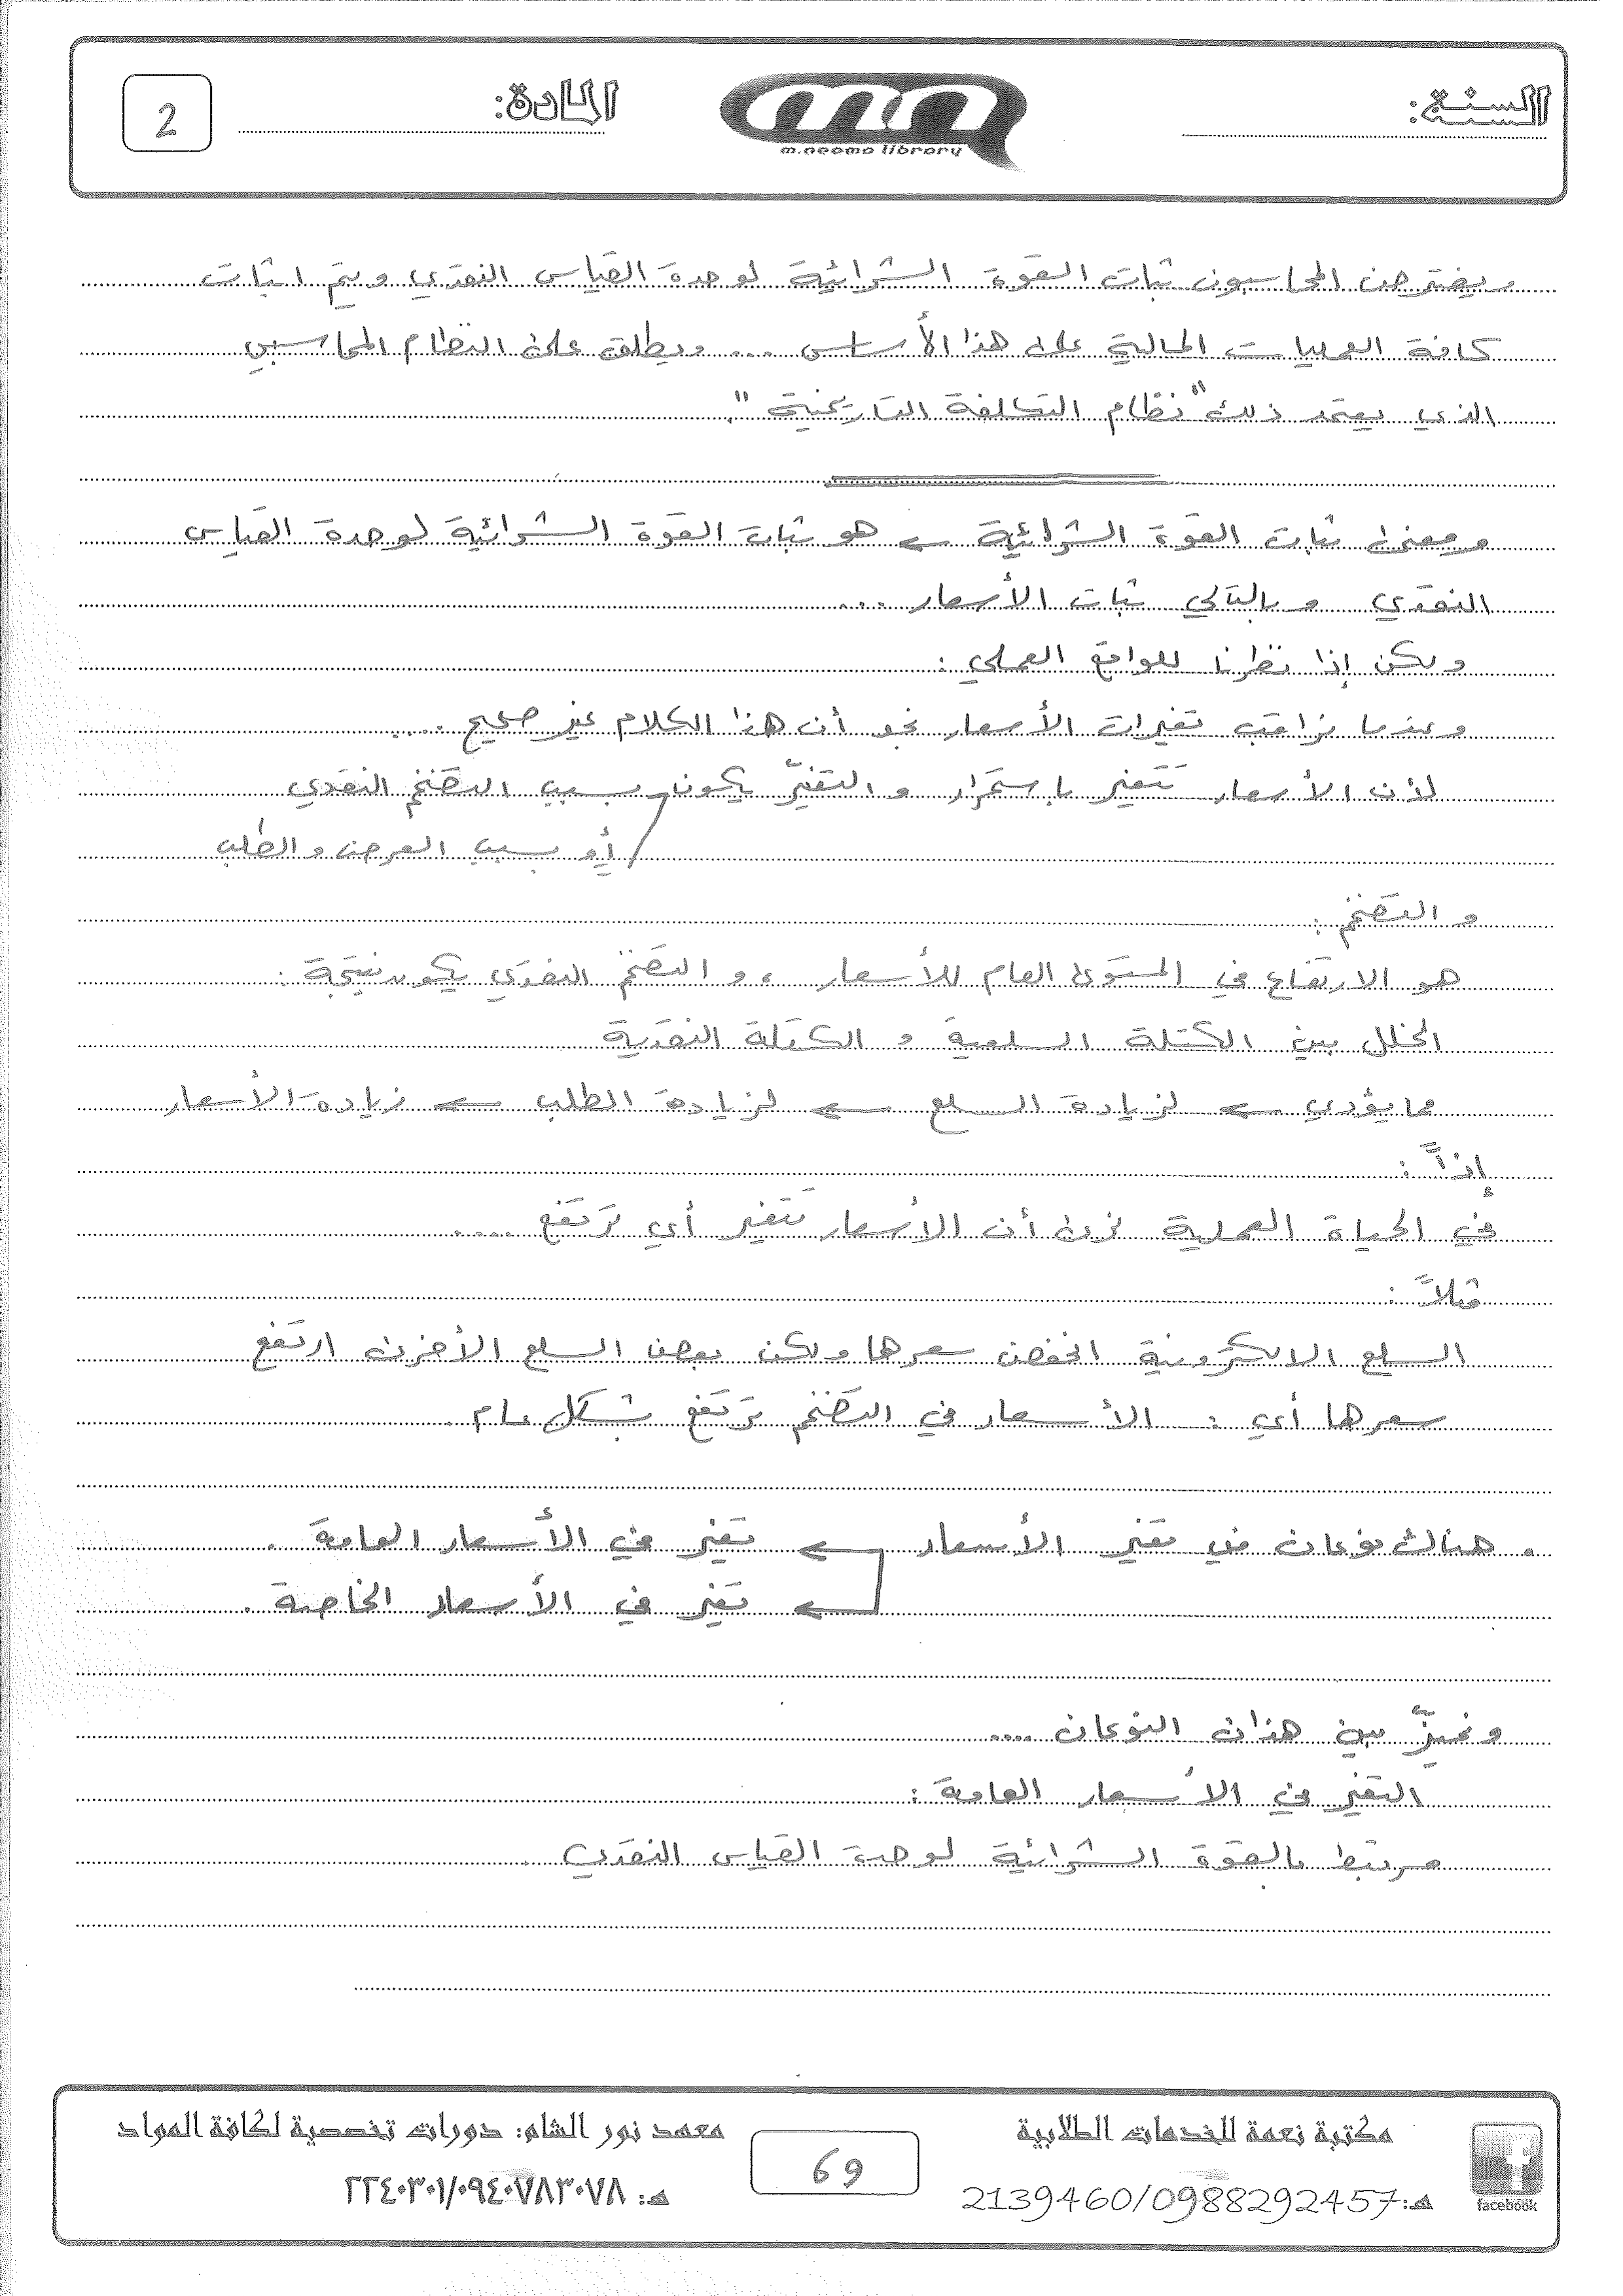 السنة:
m.neoma library
المادة:
2
ويفترض المحاسبون ثبات القوة الشرائية لوحدة القياس النقدي ويتم اثبات
كافة العمليات المالية على هذا الأساس ... ويطلق على النظام المحاسبي
الذي يعتمد ذلك "نظام التكلفة التاريخية".
ومعنى ثبات القوة الشرائية ← هو ثبات القوة الشرائية لوحدة القياس
النقدي وبالتالي ثبات الأسعار ...
ولكن إذا نظرنا للواقع العملي :
وعندما نراقب تغيرات الأسعار نجد أن هذا الكلام غير صحيح ....
لأن الأسعار تتغير باستمرار والتغيّر يكون بسبب التضخم النقدي
أو بسبب العرض والطلب
والتضخم :
هو الارتفاع في المستوى العام للأسعار ، والتضخم النقدي يكون نتيجة :
الخلل بين الكتلة السلعية والكتلة النقدية
مما يؤدي ← لزيادة السلع ← لزيادة الطلب ← زيادة الأسعار
إذاً :
في الحياة العملية نرى أن الأسعار تتغير أي ترتفع ....
مثلاً :
السلع الالكترونية انخفض سعرها ولكن بعض السلع الأخرى ارتفع
سعرها أي : الأسعار في التضخم ترتفع بشكل عام .
. هناك نوعان من تغير الأسعار ← تغير في الأسعار العامة .
← تغير في الأسعار الخاصة .
ونميّز بين هذان النوعان ....
التغير في الأسعار العامة :
مرتبط بالقوة الشرائية لوحدة القياس النقدي .
مكتبة نعمة للخدمات الطلابية
هـ: 2139460/0988292457
facebook
69
معهد نور الشام: دورات تخصصية لكافة المواد
هـ: ٢٢٤٠٣٠١/٠٩٤٠٧٨٣٠٧٨